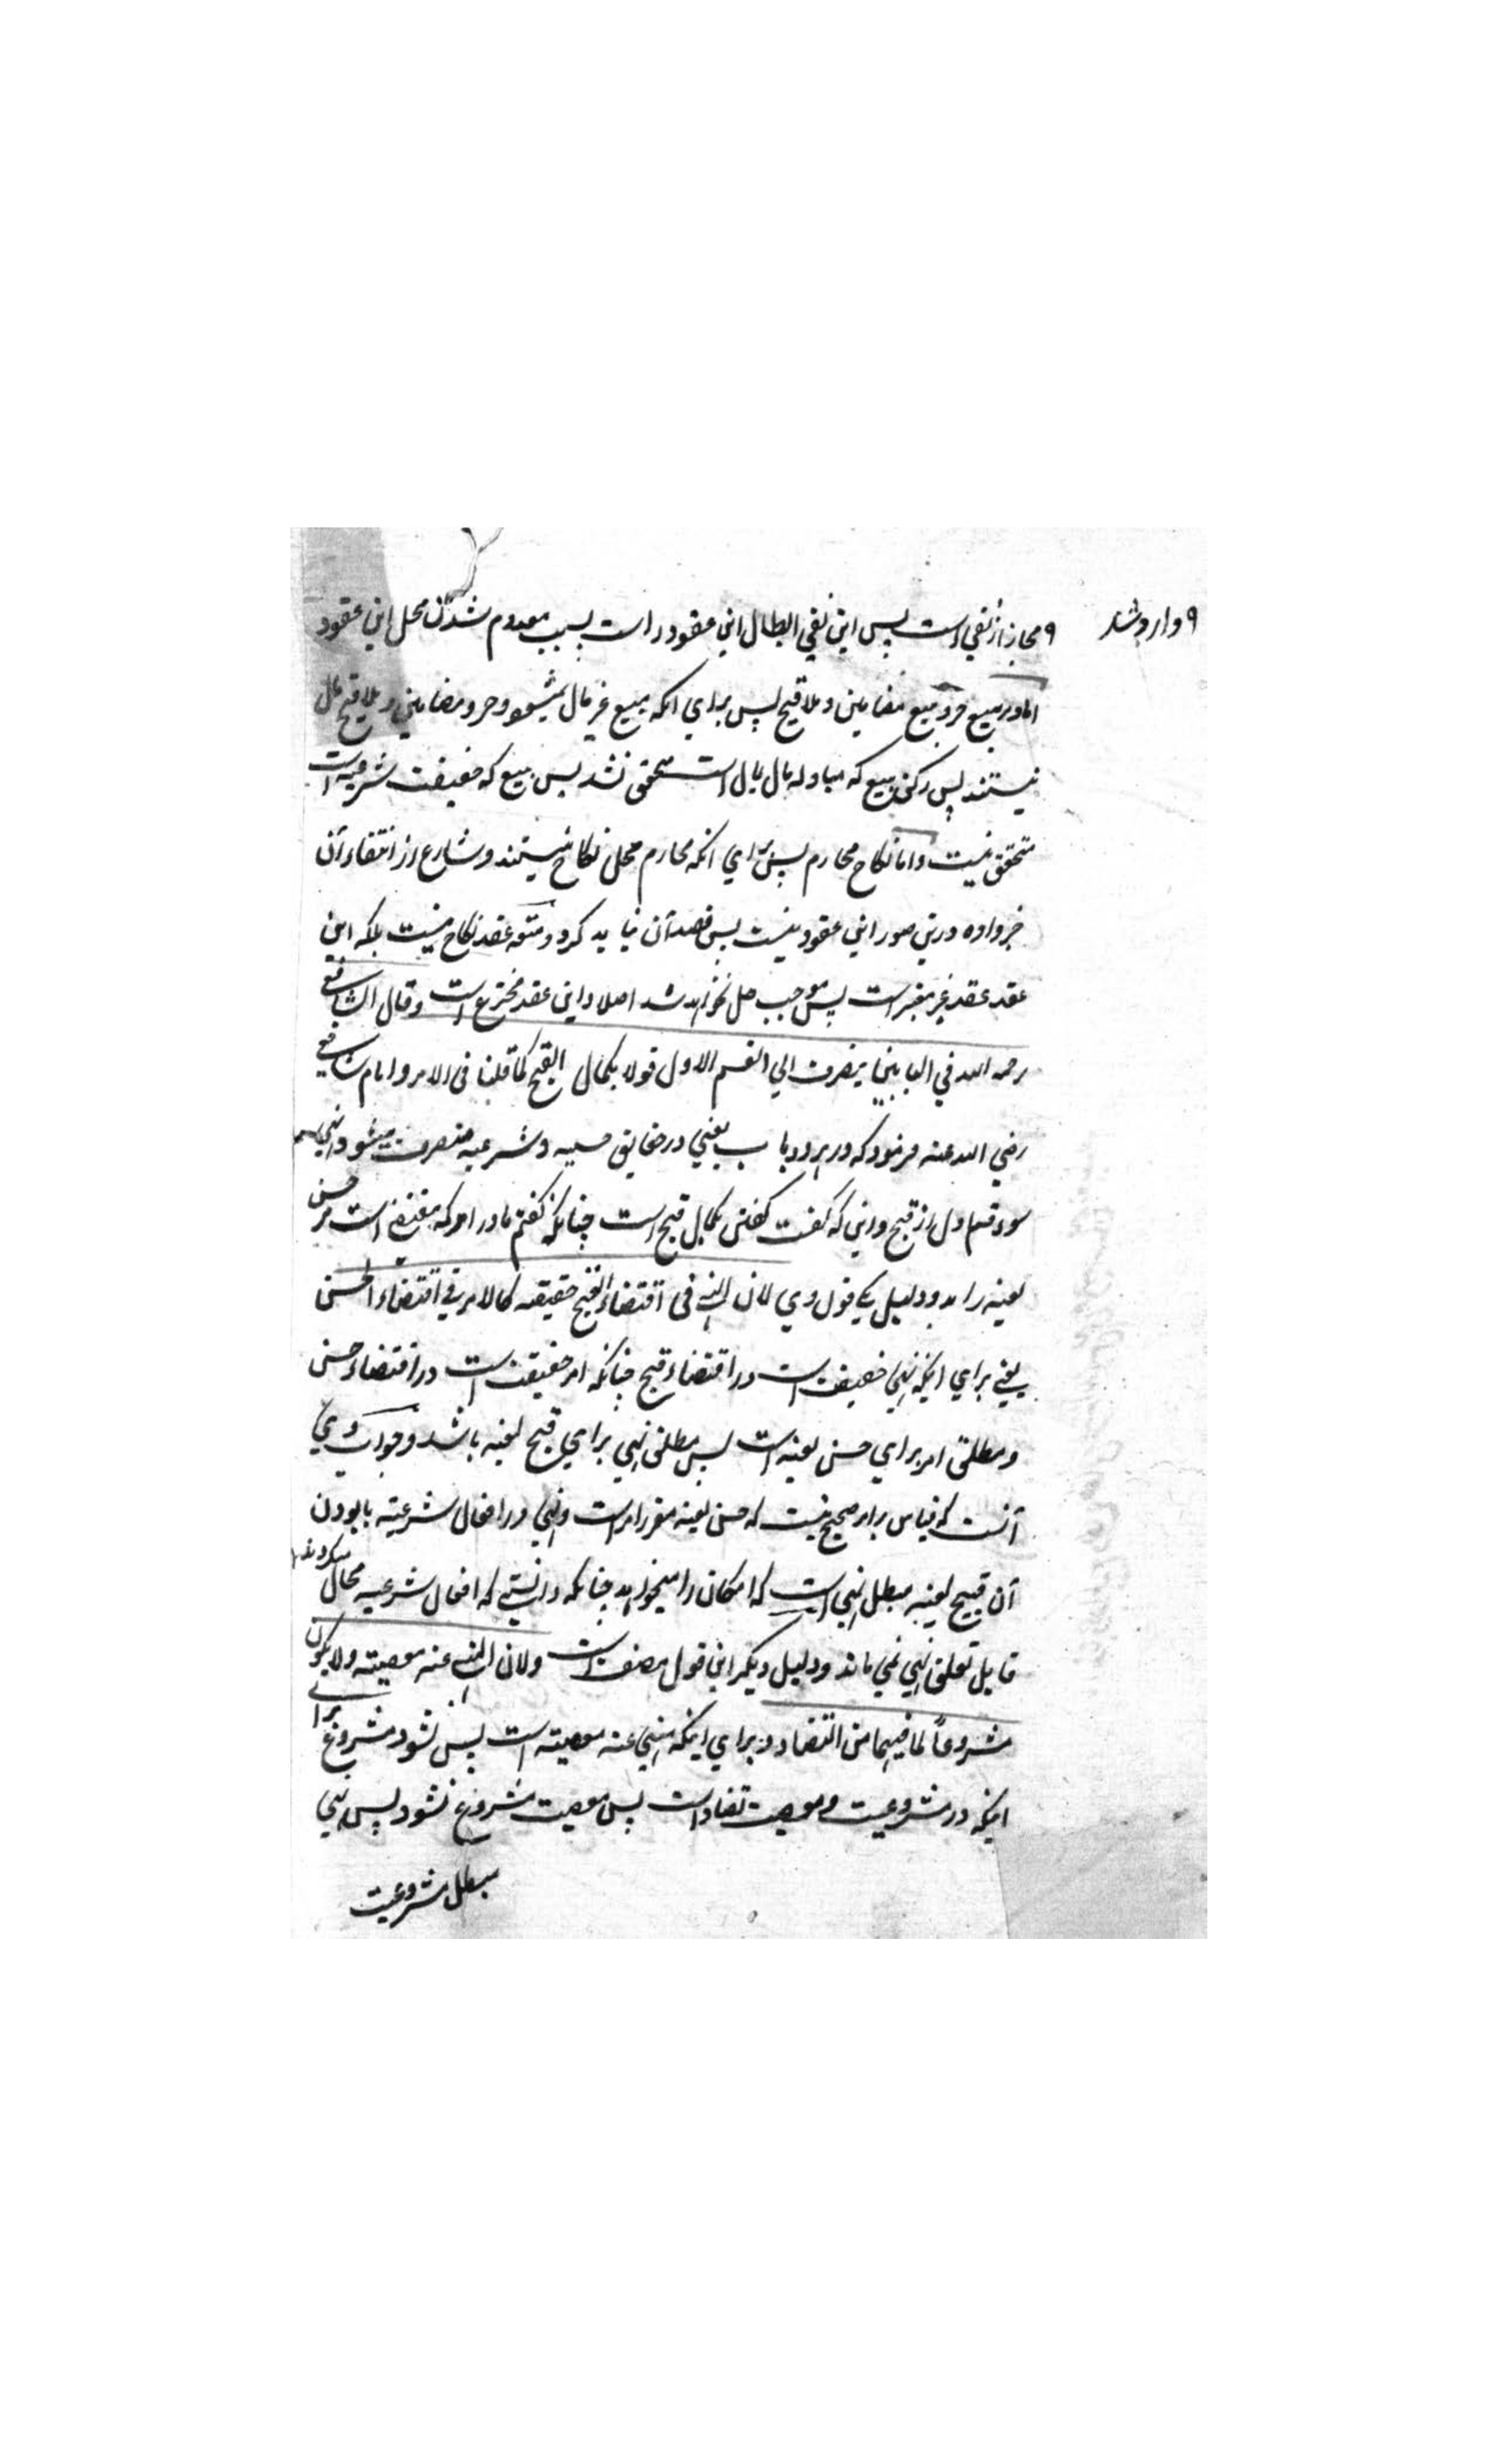 ۹ وارد شد
۹ مجاز از نفی است پس این نفی ابطال این عقود راست بسبب معدوم شدن محل این عقود
اما در بیع حر و بیع مضامین و ملاقیح پس برای آنکه بیع غیر مال نمیشود و حر و مضامین و ملاقیح مال
نیستند پس رکن بیع که مبادله مال بمال است متحقق نشد پس بیع که حقیقت شرعیه است
متحقق نیست و اما نکاح محارم پس برای آنکه محارم محل نکاح نیستند و شارع از انتفاء آن
خبر داده درین صور این عقود نیست پس قصد آن نباید کرد و متعه عقد نکاح نیست بلکه این
عقد عقد غیر معتبر است پس موجب حل نخواهد شد اصلا و این عقد مخترع است وقال الشافعی
رحمه الله فی البابین ینصرف الی القسم الاول قولا بکمال القبح کما قلنا فی الامر و امام شافعی
رضی الله عنه فرمود که در هر دو باب یعنی در حقایق حسیه و شرعیه منصرف میشود نهی
سوء قسم اول از قبح و این که گفت گفتن بکمال قبح است چنانکه گفتم ما در امر که مقتضی است مر حسن
لعینه را بدو دلیل یکے قول وی لان النهی فی اقتضاء القبح حقیقه کالامر فی اقتضاء الحسن
یعنی برای اینکه نهی حقیقت است در اقتضاء قبح چنانکه امر حقیقت است در اقتضاء حسن
و مطلق امر برای حسن لعینه است پس مطلق نهی برای قبح لعینه باشد و جواب وی
آنست که قیاس بر امر صحیح نیست که حسن لعینه مقرر امر است و نهی در افعال شرعیه با بودن
آن قبیح لعینه مبطل نهی است که امکان را میخواهد چنانکه دانستی که افعال شرعیه محال میگردند
قابل تعلق نهی نمی ماند و دلیل دیگر این قول مصنف است ولان المنهی عنه معصیته ولا یکون
مشروعاً لما فیهما من التضاد و برای اینکه منهی عنه معصیته است پس نشود مشروع برای
اینکه در مشروعیت و معصیت تضاد است پس معصیت مشروع نشود پس نهی
مبطل مشروعیت